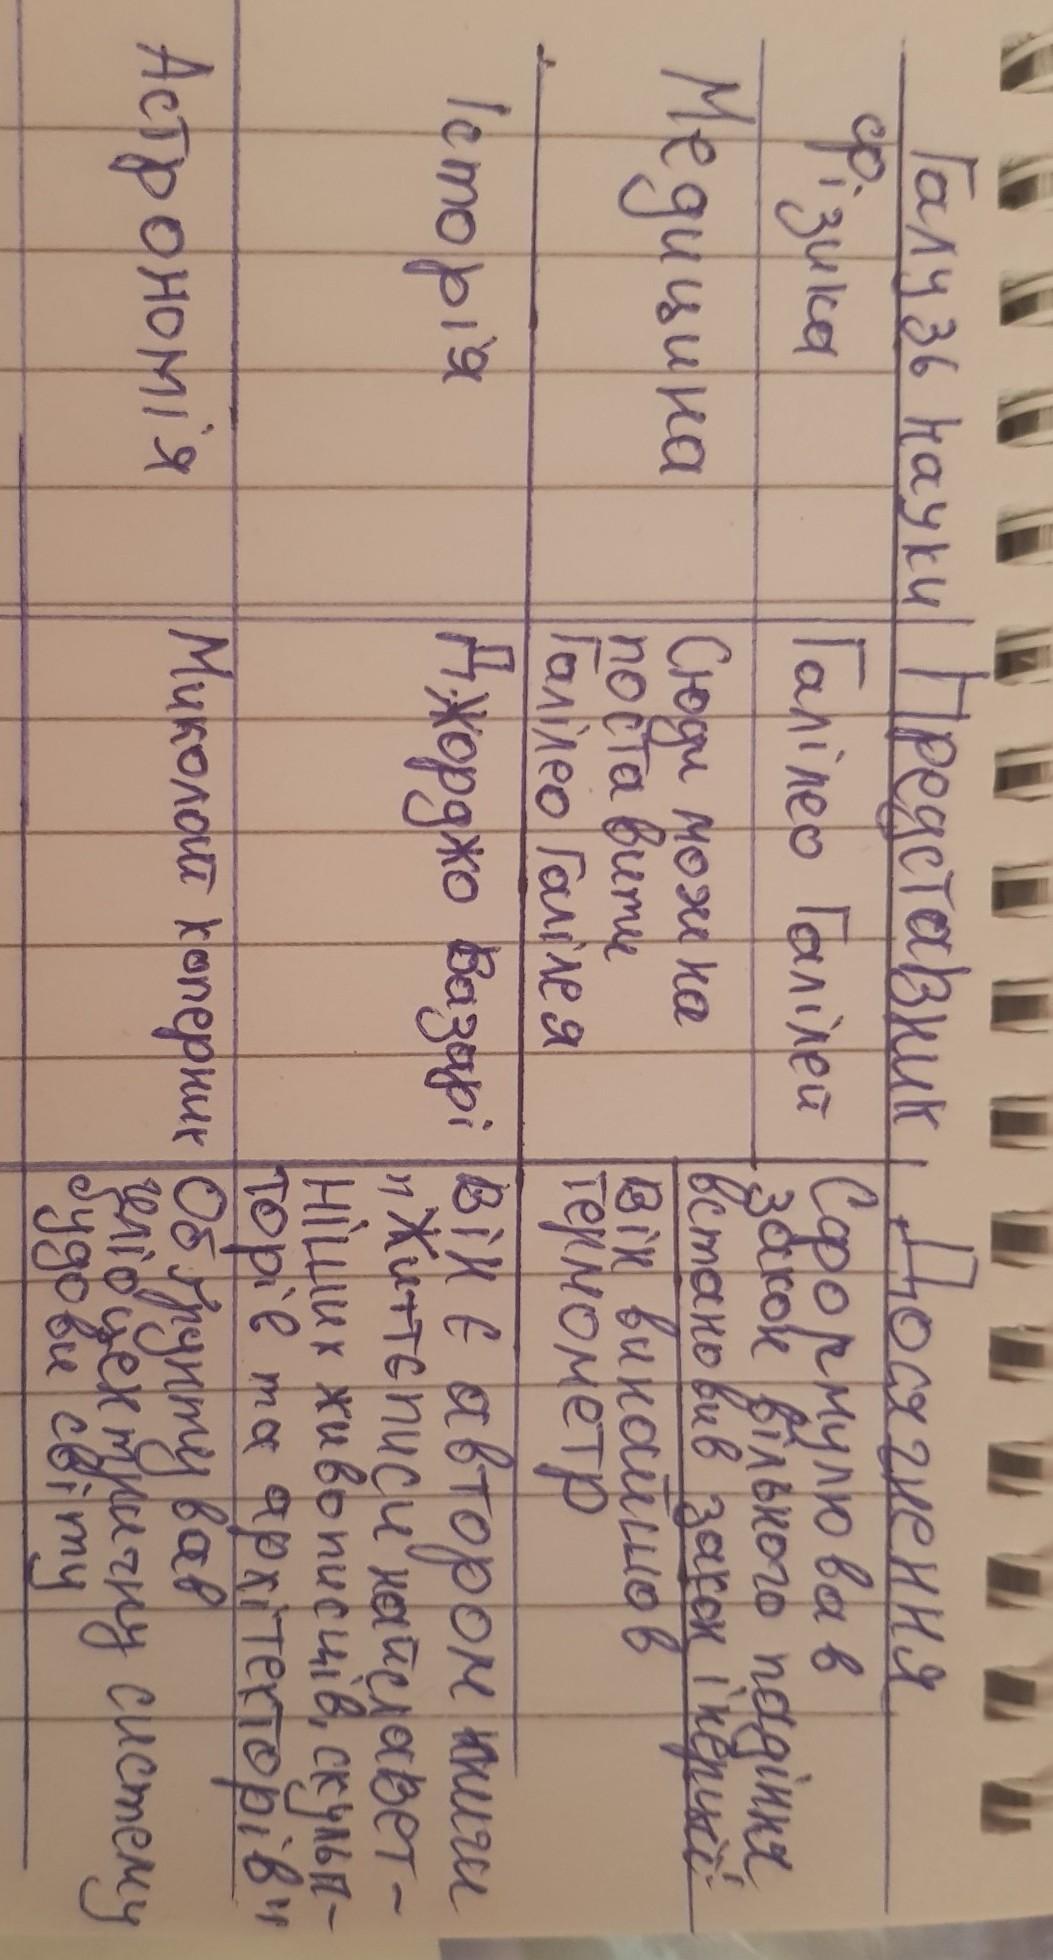 Галузь науки
Представник
Досягнення
Фізика
Галілео Галілей
Сформулював
закон вільного падіння
встановив закон інерції
Медицина
Сюди можна
поставити
Галілео Галілея
Він винайшов
термометр
Історія
Джорджо Вазарі
Він є автором книги
"Життєписи найславет-
ніших живописців, скульп-
торів та архітекторів"
Астрономія
Миколай Коперник
Обґрунтував
геліоцентричну систему
будови світу